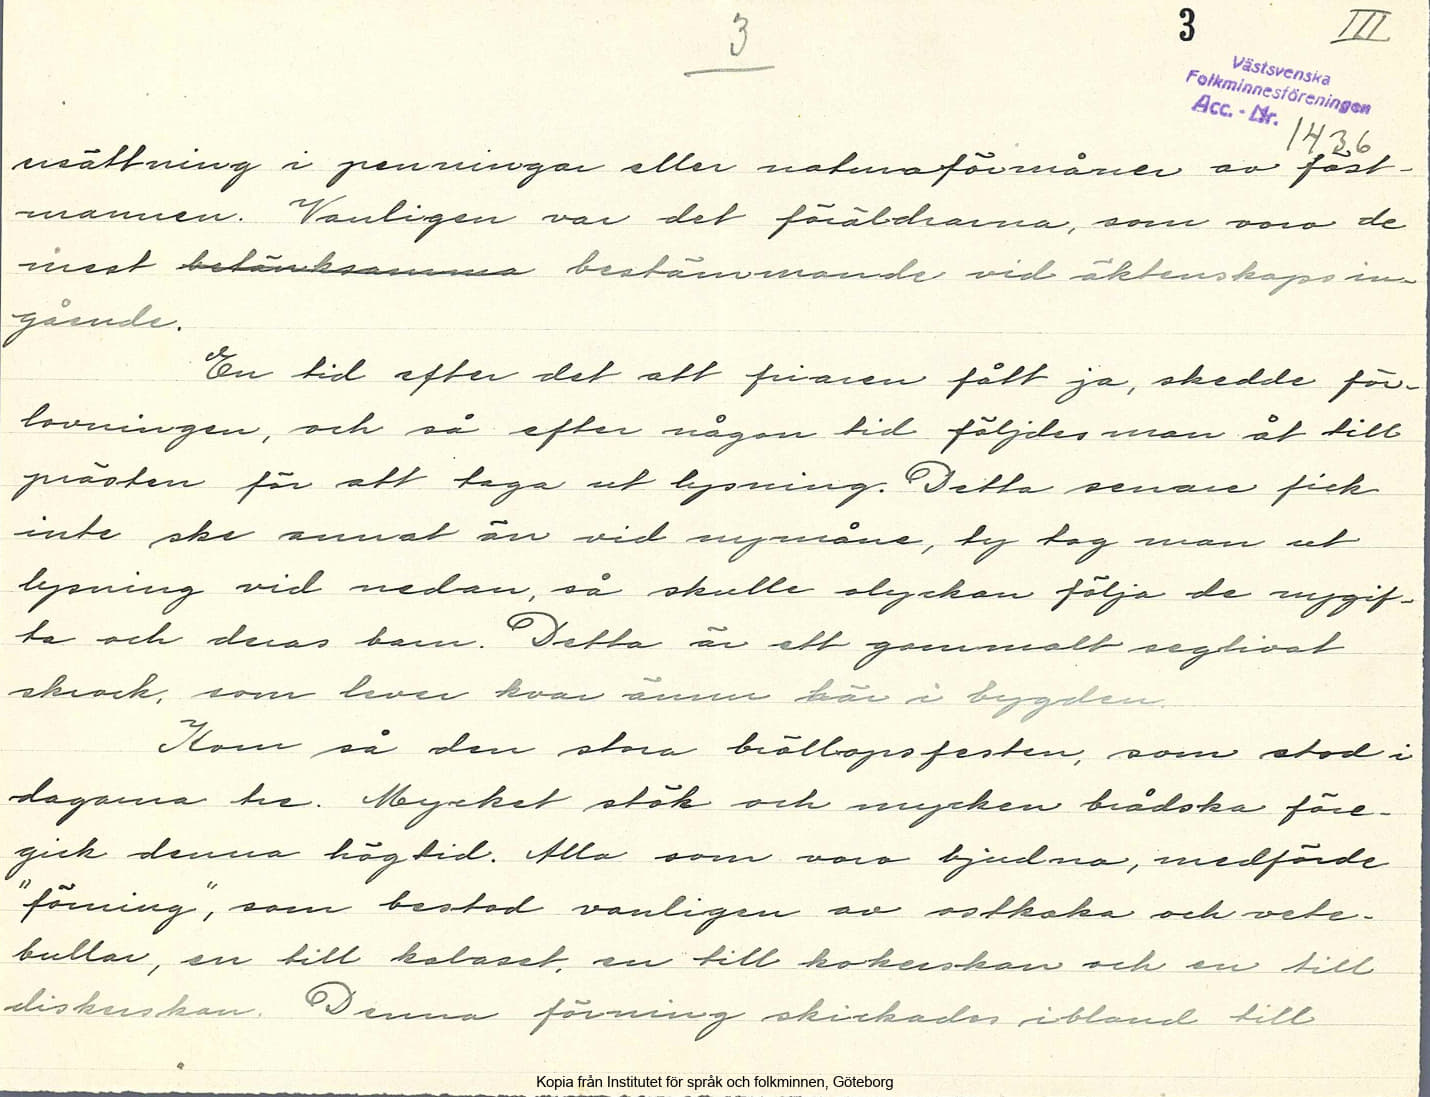 3
3
III
Västsvenska
Folkminnesföreningen
Acc. - Nr. 1436
ersättning i penningar eller naturaförmåner av fäst-
mannen. Vanligen var det föräldrarna, som voro de
mest betänksamma bestämmande vid äktenskaps in-
gående.
En tid efter det att friaren fått ja, skedde för-
lovningen, och så efter någon tid följdes man åt till
prästen för att taga ut lysning. Detta senare fick
inte ske annat än vid nymåne, ty tog man ut
lysning vid nedan, så skulle olyckan följa de nygif-
ta och deras barn. Detta är ett gammalt seglivat
skrock, som lever kvar ännu här i bygden.
Kom så den stora bröllopsfesten, som stod i
dagarna tre. Mycket stök och mycken brådska före-
gick denna högtid. Alla som voro bjudna, medförde
"förning", som bestod vanligen av ostkaka och vete-
bullar, en till kalaset, en till kokerskan och en till
diskerskan. Denna förning skickades ibland till
Kopia från Institutet för språk och folkminnen, Göteborg